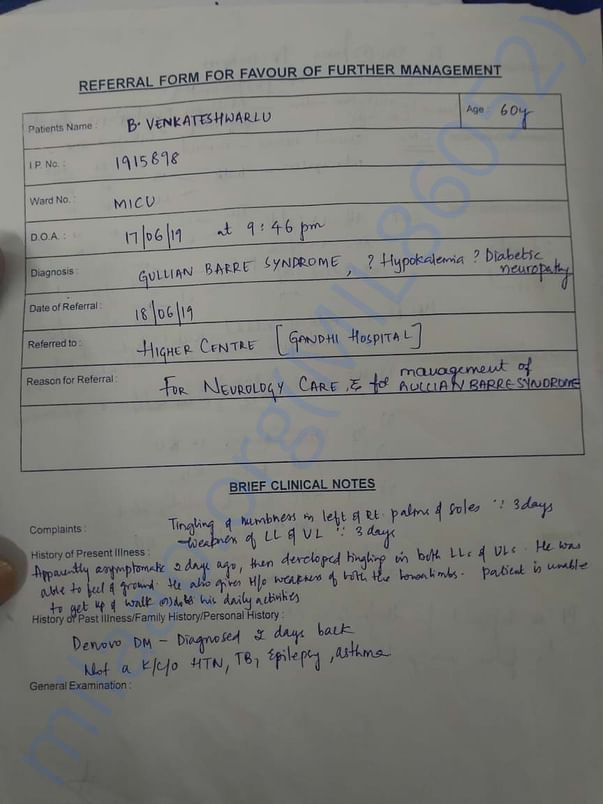 REFERRAL FORM FOR FAVOUR OF FURTHER MANAGEMENT
Patients Name : B. VENKATESHWARLU Age : 60y
I.P. No. : 1915898
Ward No. : MICU
D.O.A. : 17/06/19 at 9:46 pm
Diagnosis : GULLIAN BARRE SYNDROME, ? Hypokalemia ? Diabetic
neuropathy
Date of Referral : 18/06/19
Referred to : HIGHER CENTRE [GANDHI HOSPITAL]
Reason for Referral : FOR NEUROLOGY CARE, & for management of
GULLIAN BARRE SYNDROME
BRIEF CLINICAL NOTES
Complaints : Tingling & numbness in left & Rt. palms & soles ∵ 3days
Weakness of LL & UL ∵ 3 days
History of Present Illness :
Apparently asymptomatic 2 days ago, then developed tingling in both LLs & ULs. He was
able to feel ground. He also gives H/o weakness of both the limbs. Patient is unable
to get up & walk his daily activities
History of Past Illness/Family History/Personal History :
Denovo DM - Diagnosed 2 days back
Not a K/C/O HTN, TB, Epilepsy, asthma
General Examination :
milaap.org(MIL86052)